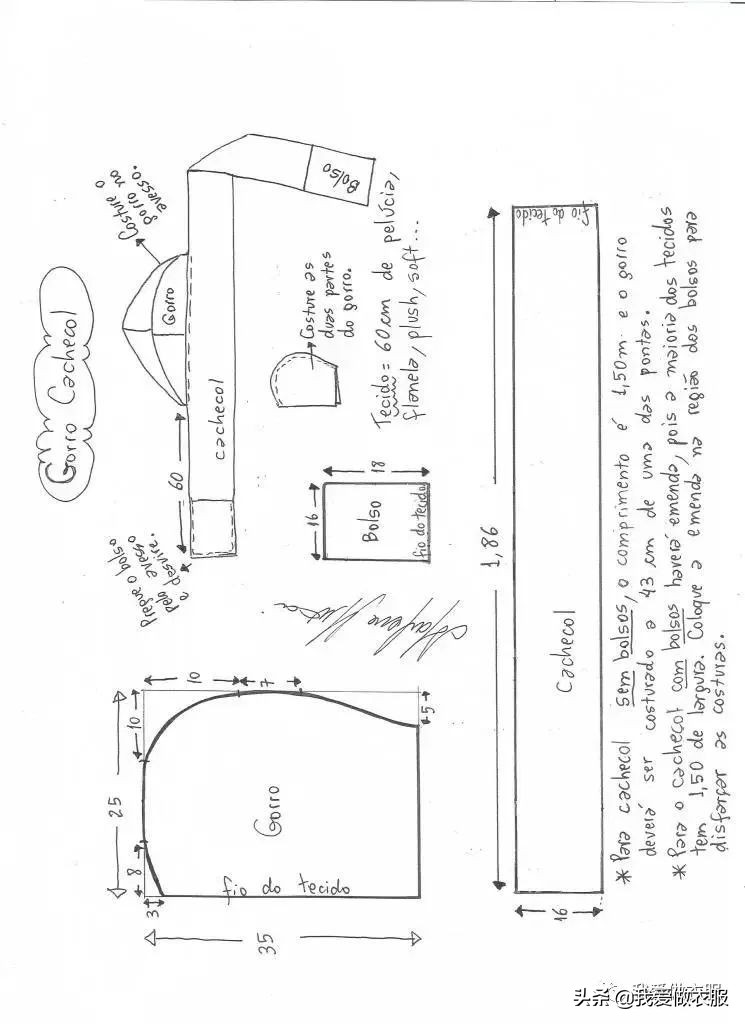 Gorro Cachecol
Costure o
gorro no
avesso.
Gorro
Bolso
cachecol
60
Pregue o bolso
pelo avesso
e desvire.
Costure as
duas partes
do gorro.
Tecido = 60 cm de pelúcia,
flanela, plush, soft...
16
18
Bolso
fio do tecido
25
8
10
3
10
7
5
35
Gorro
fio do tecido
1,86
16
Cachecol
fio do tecido
* Para cachecol sem bolsos, o comprimento é 1,50m e o gorro
deverá ser costurado a 43 cm de uma das pontas.
* Para o cachecol com bolsos haverá emenda, pois a maioria dos tecidos
tem 1,50 de largura. Coloque a emenda na região dos bolsos para
disfarçar as costuras.
我爱做衣服
头条 @我爱做衣服